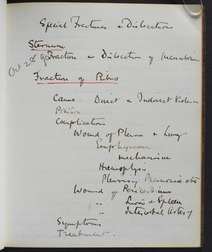 Special Fractures & Dislocations
Sternum
Oct 28th 90
Fracture & Dislocation of Manubrium
Fracture of Ribs
Cause Direct & Indirect Violence
Position
Complication
Wound of Pleura & Lung
Emphysema
mechanism
Haemoptysis
Pleurisy Pneumonia etc
Wound of Pericardium
" Liver & Spleen
" Intercostal Artery
Symptoms
Treatment.